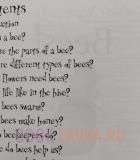 tents
ction
s a bee?
re the parts of a bee?
re different types of bees?
flowers need bees?
life like in the hive?
bees swarm?
bees make honey?
beekeepers do?
do bees help us?